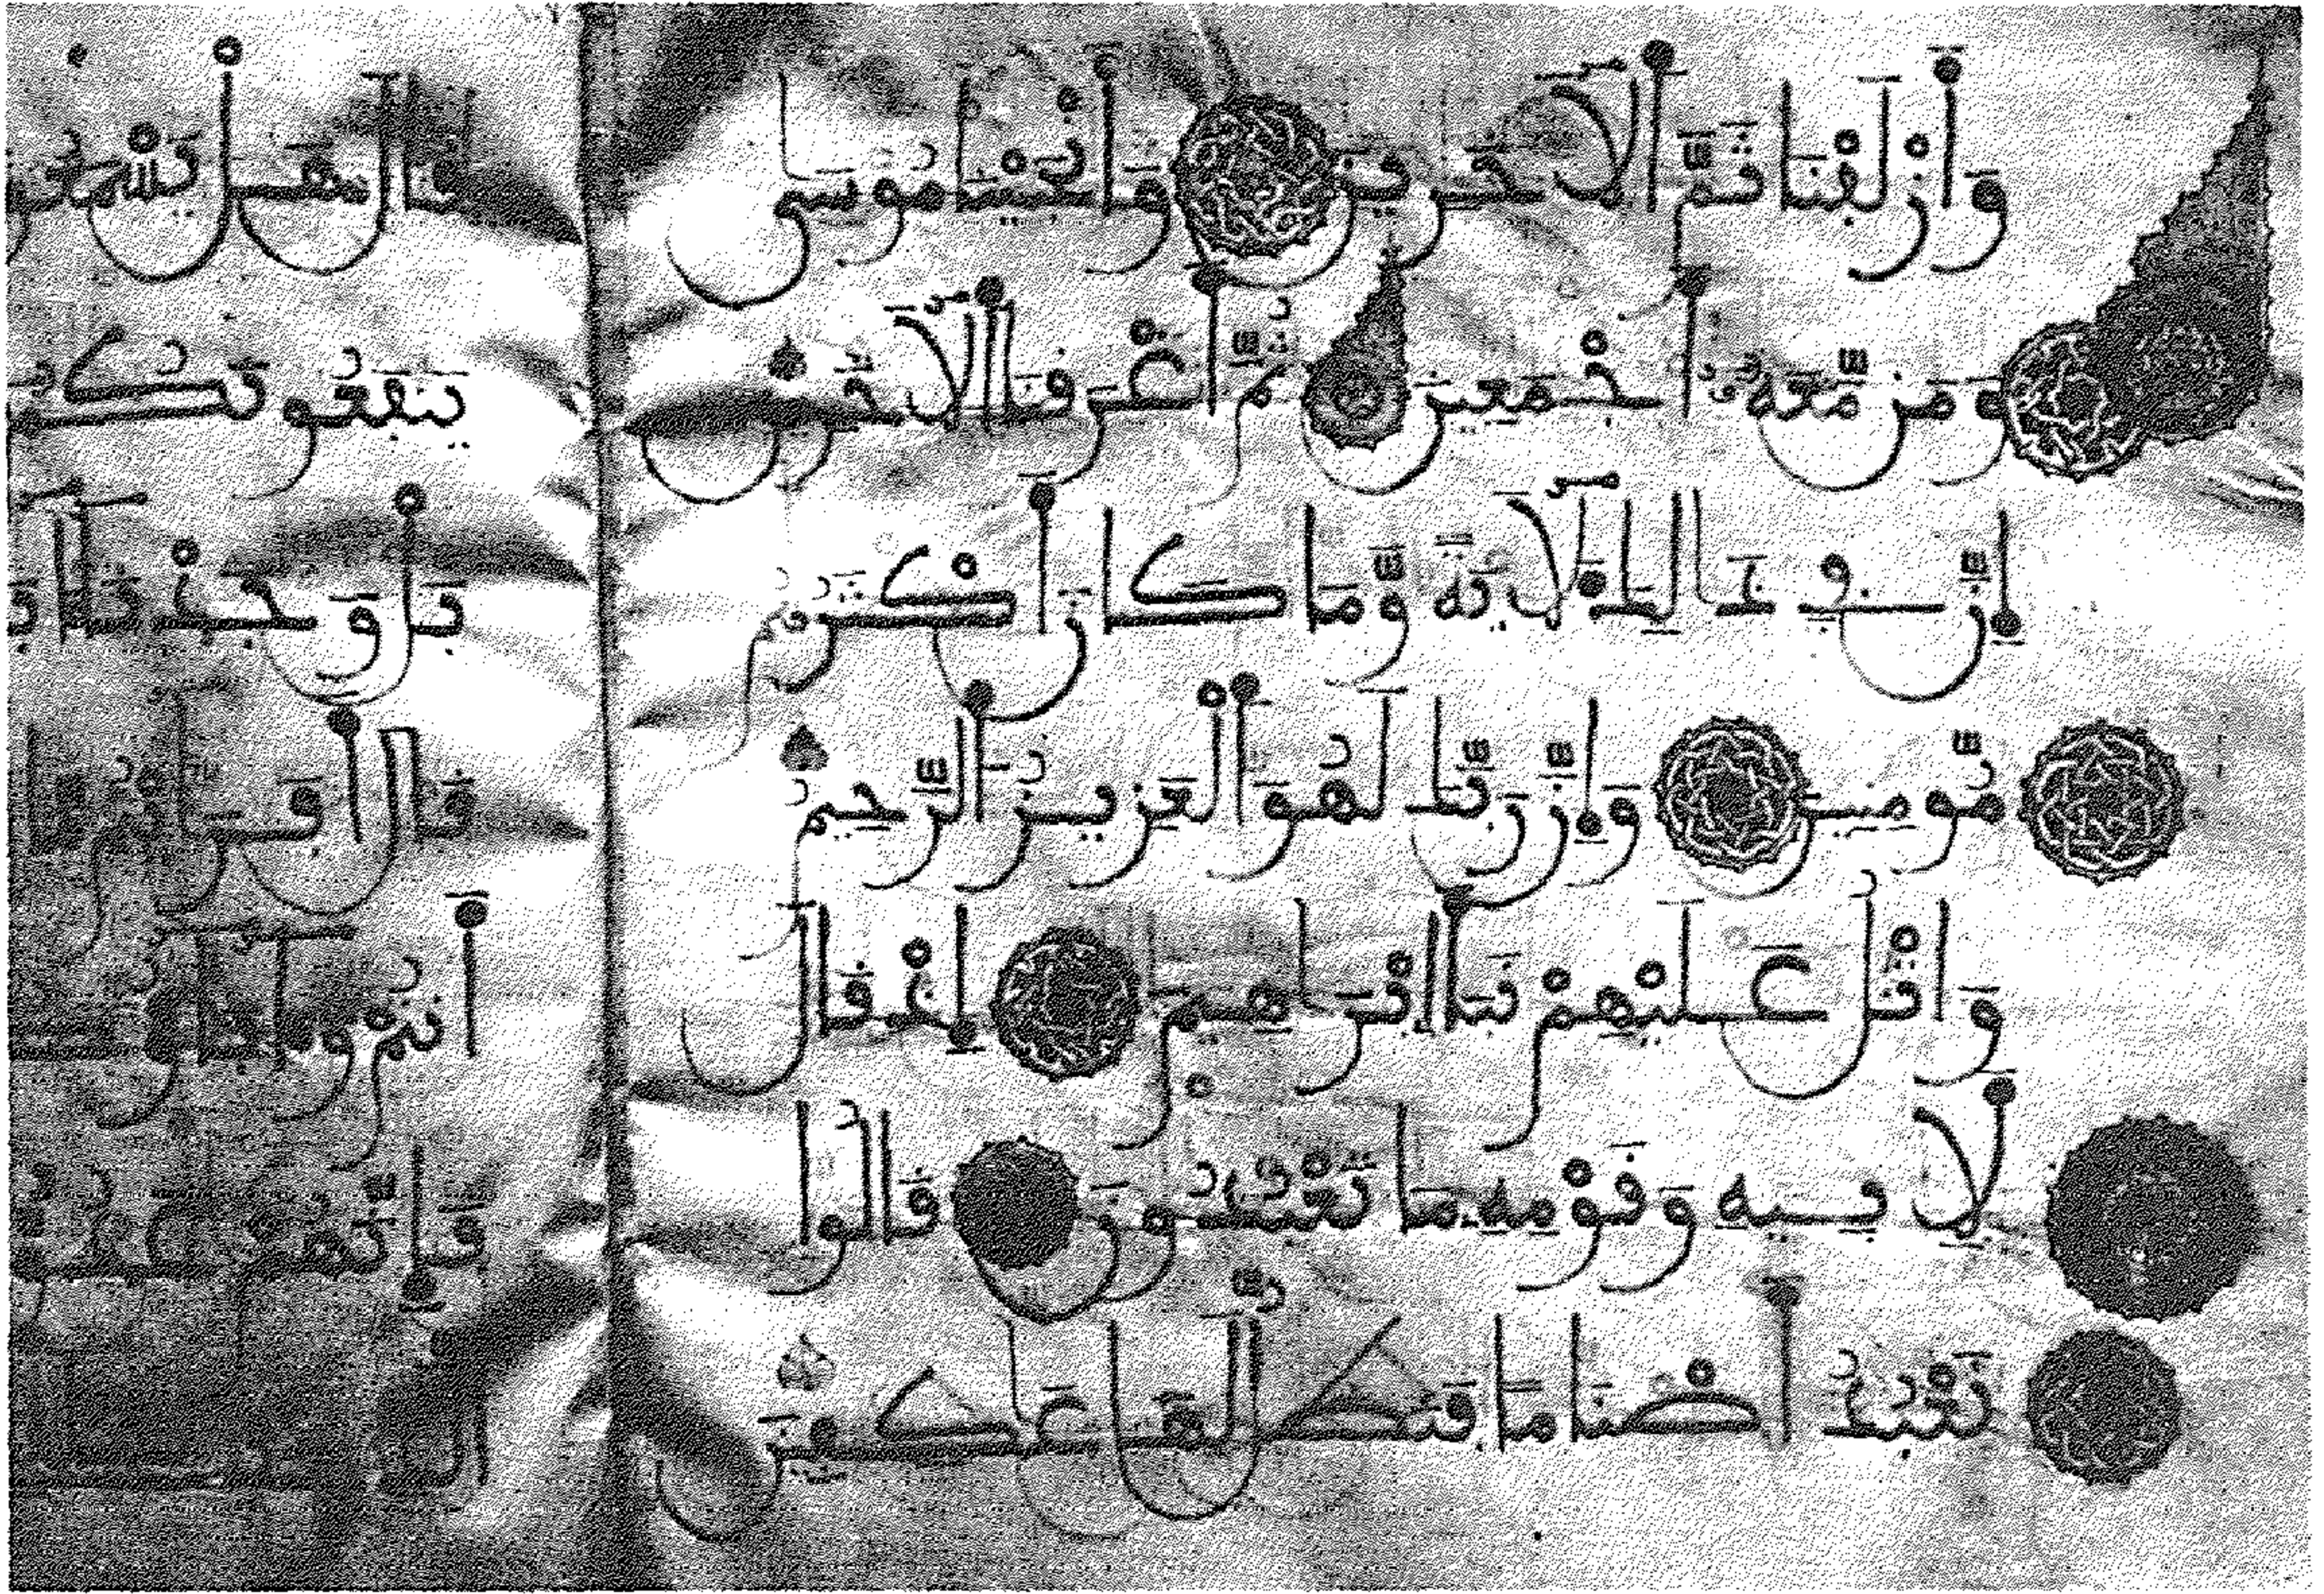 وَأَزْلَفْنَا ثَمَّ أَلَاخَرِينَ وَأَنجَيْنَا مُوسَى
وَمَن مَّعَهُ أَجْمَعِينَ ثُمَّ أَغْرَقْنَا أَلَاخَرِينَ
إِنَّ فِي ذَالِكَ لَأَيَةً وَمَا كَانَ أَكْثَرُهُم
مُّومِنِينَ وَإِنَّ رَبَّكَ لَهُوَ أَلْعَزِيزُ أَلرَّحِيمُ
وَاتْلُ عَلَيْهِمْ نَبَأَ إِبْرَاهِيمَ إِذْ قَالَ
لِأَبِيهِ وَقَوْمِهِ مَا تَعْبُدُونَ قَالُوا
نَعْبُدُ أَصْنَامًا فَنَظَلُّ لَهَا عَاكِفِينَ
قَالَ هَلْ يَسْمَعُو
يَنفَعُونَكُ
بَلْ وَجَدْنَا ءَابَا
قَالَ أَفَرَايْتُم مَّا
أَنتُمْ
فَإِنَّهُمْ عَدُوٌّ